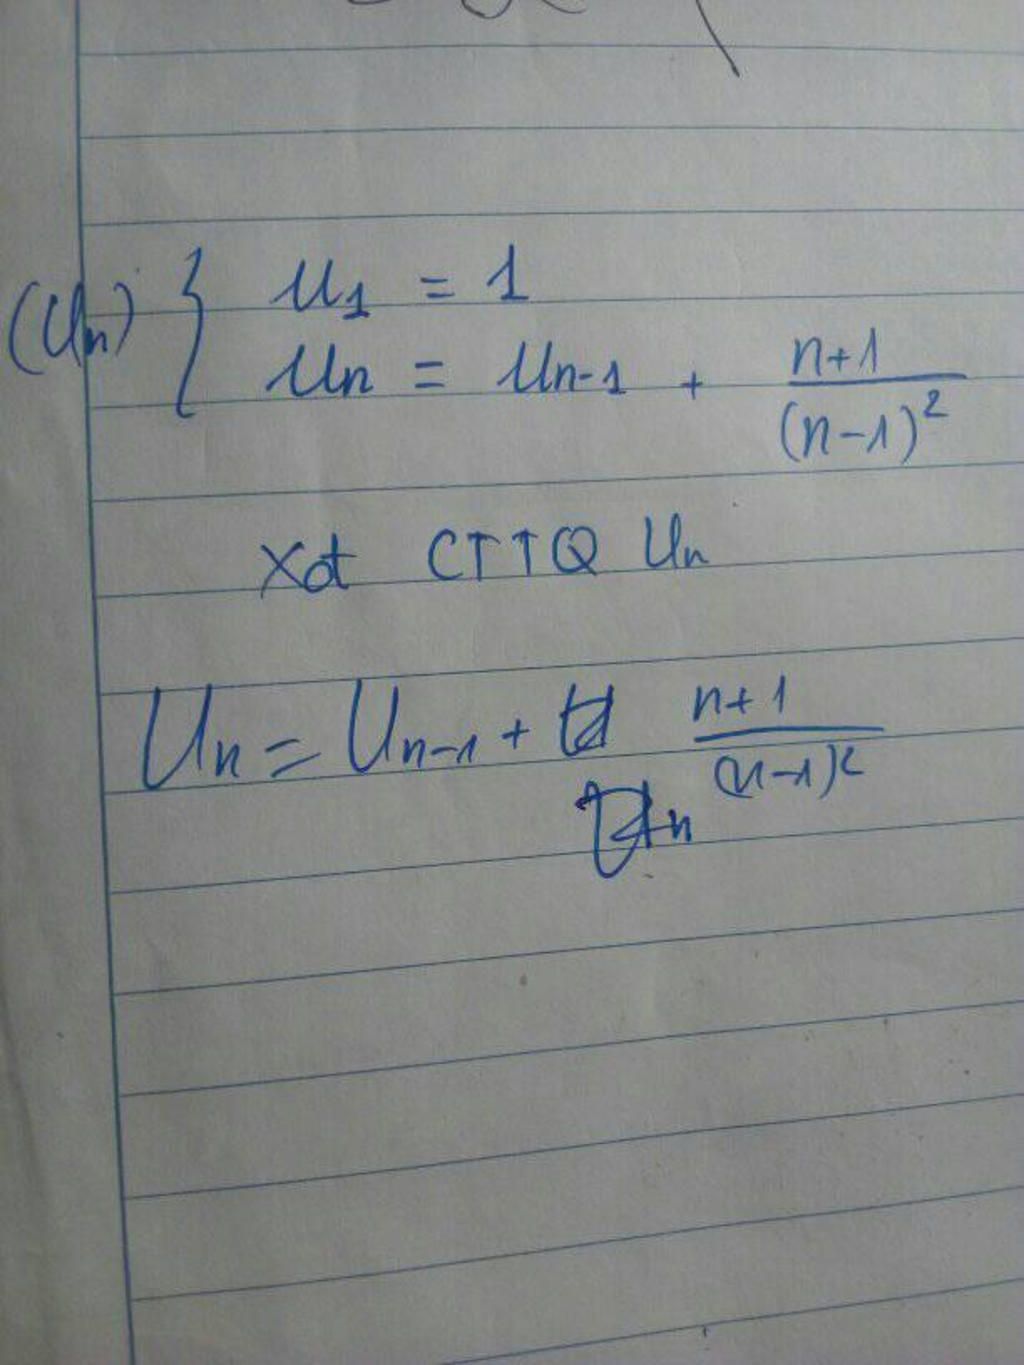 (Un) { u1 = 1
un = un-1 + (n+1)/(n-1)²
Xđt CTTQ Un
Un = Un-1 + (n+1)/(n-1)²
n